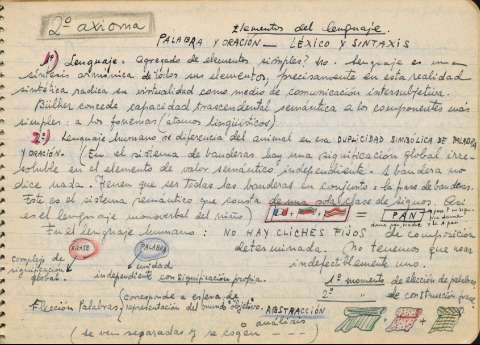 2º axioma
Elementos del lenguaje.
PALABRA Y ORACIÓN — LÉXICO Y SINTAXIS
1º) Lenguaje. Agregado de elementos simples? No. Lenguaje es una
síntesis armónica de todos sus elementos, precisamente en esta realidad
sintética radica su virtualidad como medio de comunicación intersubjetiva.
Bülher concede capacidad trascendental semántica a los componentes más
simples: a los fonemas (átomos lingüísticos).
2º) Lenguaje humano se diferencia del animal en esa DUPLICIDAD SIMBÓLICA DE PALABRA
Y ORACIÓN. (En el sistema de banderas hay una significación global irre-
soluble en el elemento de valor semántico independiente. 1 bandera no
dice nada. Tienen que ser todas las banderas en conjunto: la frase de banderas.
Este es el sistema semántico que consta de una sola clase de signos.
es el lenguaje monoverbal del niño) = PAN
En el lenguaje humano: NO HAY CLICHES FIJOS de composición
determinada. No tenemos que usar
indefectiblemente uno.
FRASE PALABRA
complejo de
significación
global. unidad
independiente con significación propia.
1º momento de elección de palabras
2º " de construcción frase
(corresponde a esfera de
Elección Palabras, representación del mundo objetivo. ABSTRACCIÓN
o análisis
(se ven separadas y se cogen - - - -)